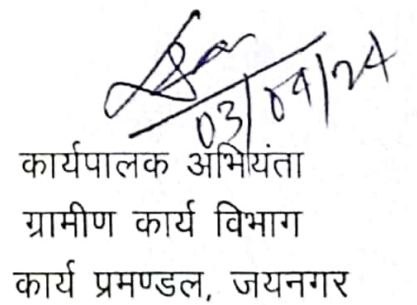 03/09/24
कार्यपालक अभियंता
ग्रामीण कार्य विभाग
कार्य प्रमण्डल, जयनगर